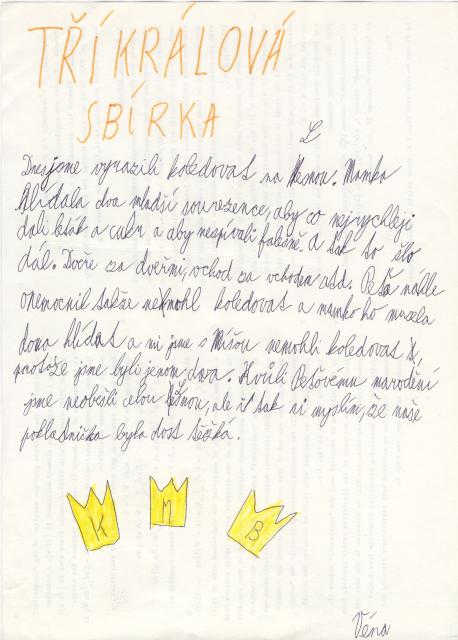 TŘÍKRÁLOVÁ
SBÍRKA
Dnes jsme vyrazili koledovat na Lesnou. Mamka
hlídala dva mladší sourozence, aby co nejrychleji
dali leták a cukr a aby nespívali falešně. A tak to šlo
dál. Dveře za dveřmi, vchod za vchodem atd. Péťa náhle
onemocněl takže nemohl koledovat a mamka ho musela
doma hlídat a mi jsme s Míšou nemohli koledovat
protože jsme byli jenom dva. Kvůli Peťovému marodění
jsme neobešli celou Lesnou, ale i tak si myslím, že naše
pokladnička byla dost těžká.
K M B
Véna